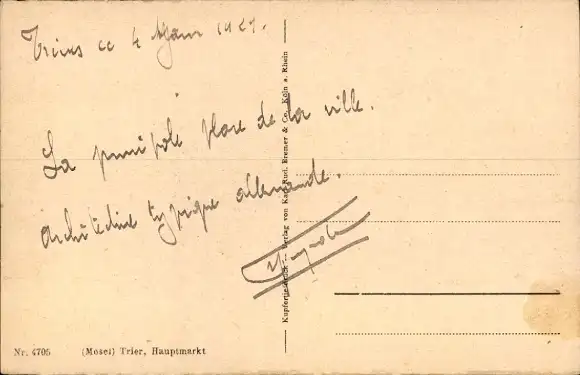 Trèves ce 4 Mars 1921.
La principale place de la ville.
Architecture typique allemande.
Kupfertiefdruck — Verlag von Karl Rud. Bremer & Co., Köln a. Rhein
Nr. 4705 (Mosel) Trier, Hauptmarkt